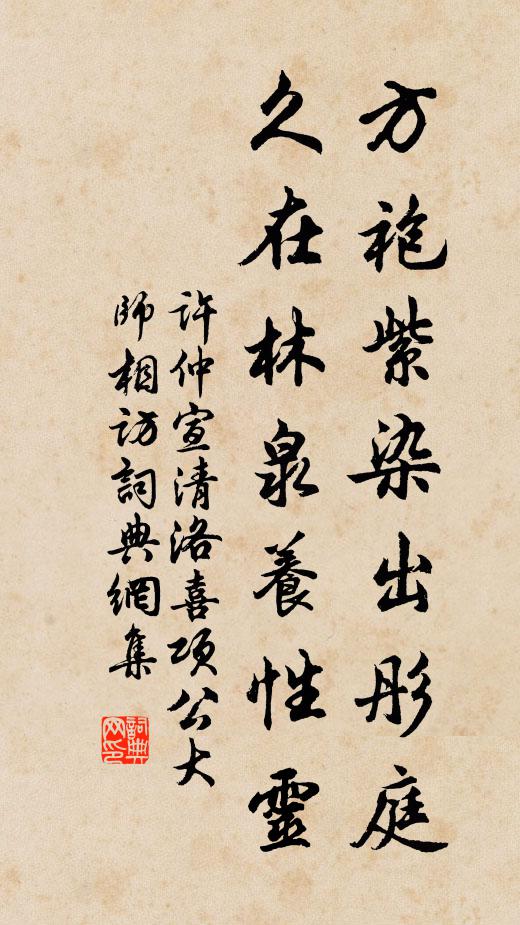 方袍紫染出彤庭
久在林泉養性靈
許仲宣清洛喜項公大
師相訪詞典網集
詞典
网印